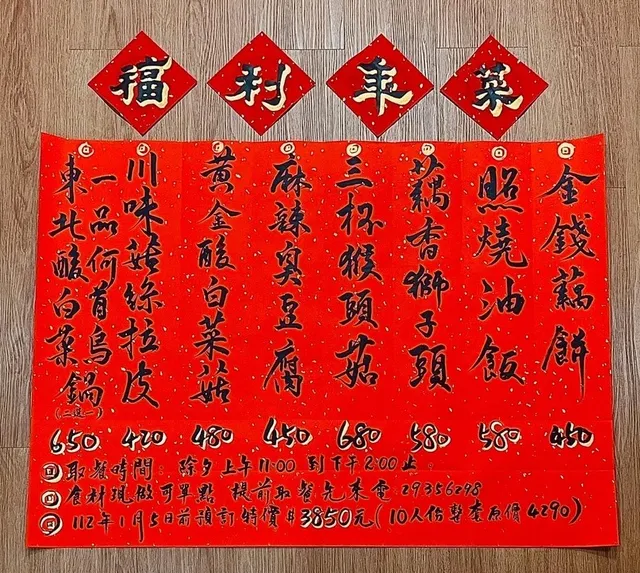 福利年菜
金錢藕餅
照燒油飯
藕香獅子頭
三杯猴頭菇
麻辣臭豆腐
黃金酸白菜菇
川味菇絲拉皮
一品何首烏
東北酸白菜鍋
(二選一)
650 420 480 450 680 580 580 450
取餐時間：除夕上午11:00 到下午2:00止。
食材現做可單點 提前取餐先來電 29356298
112年1月5日前預訂特價#3850元(10人份整套原價4290)